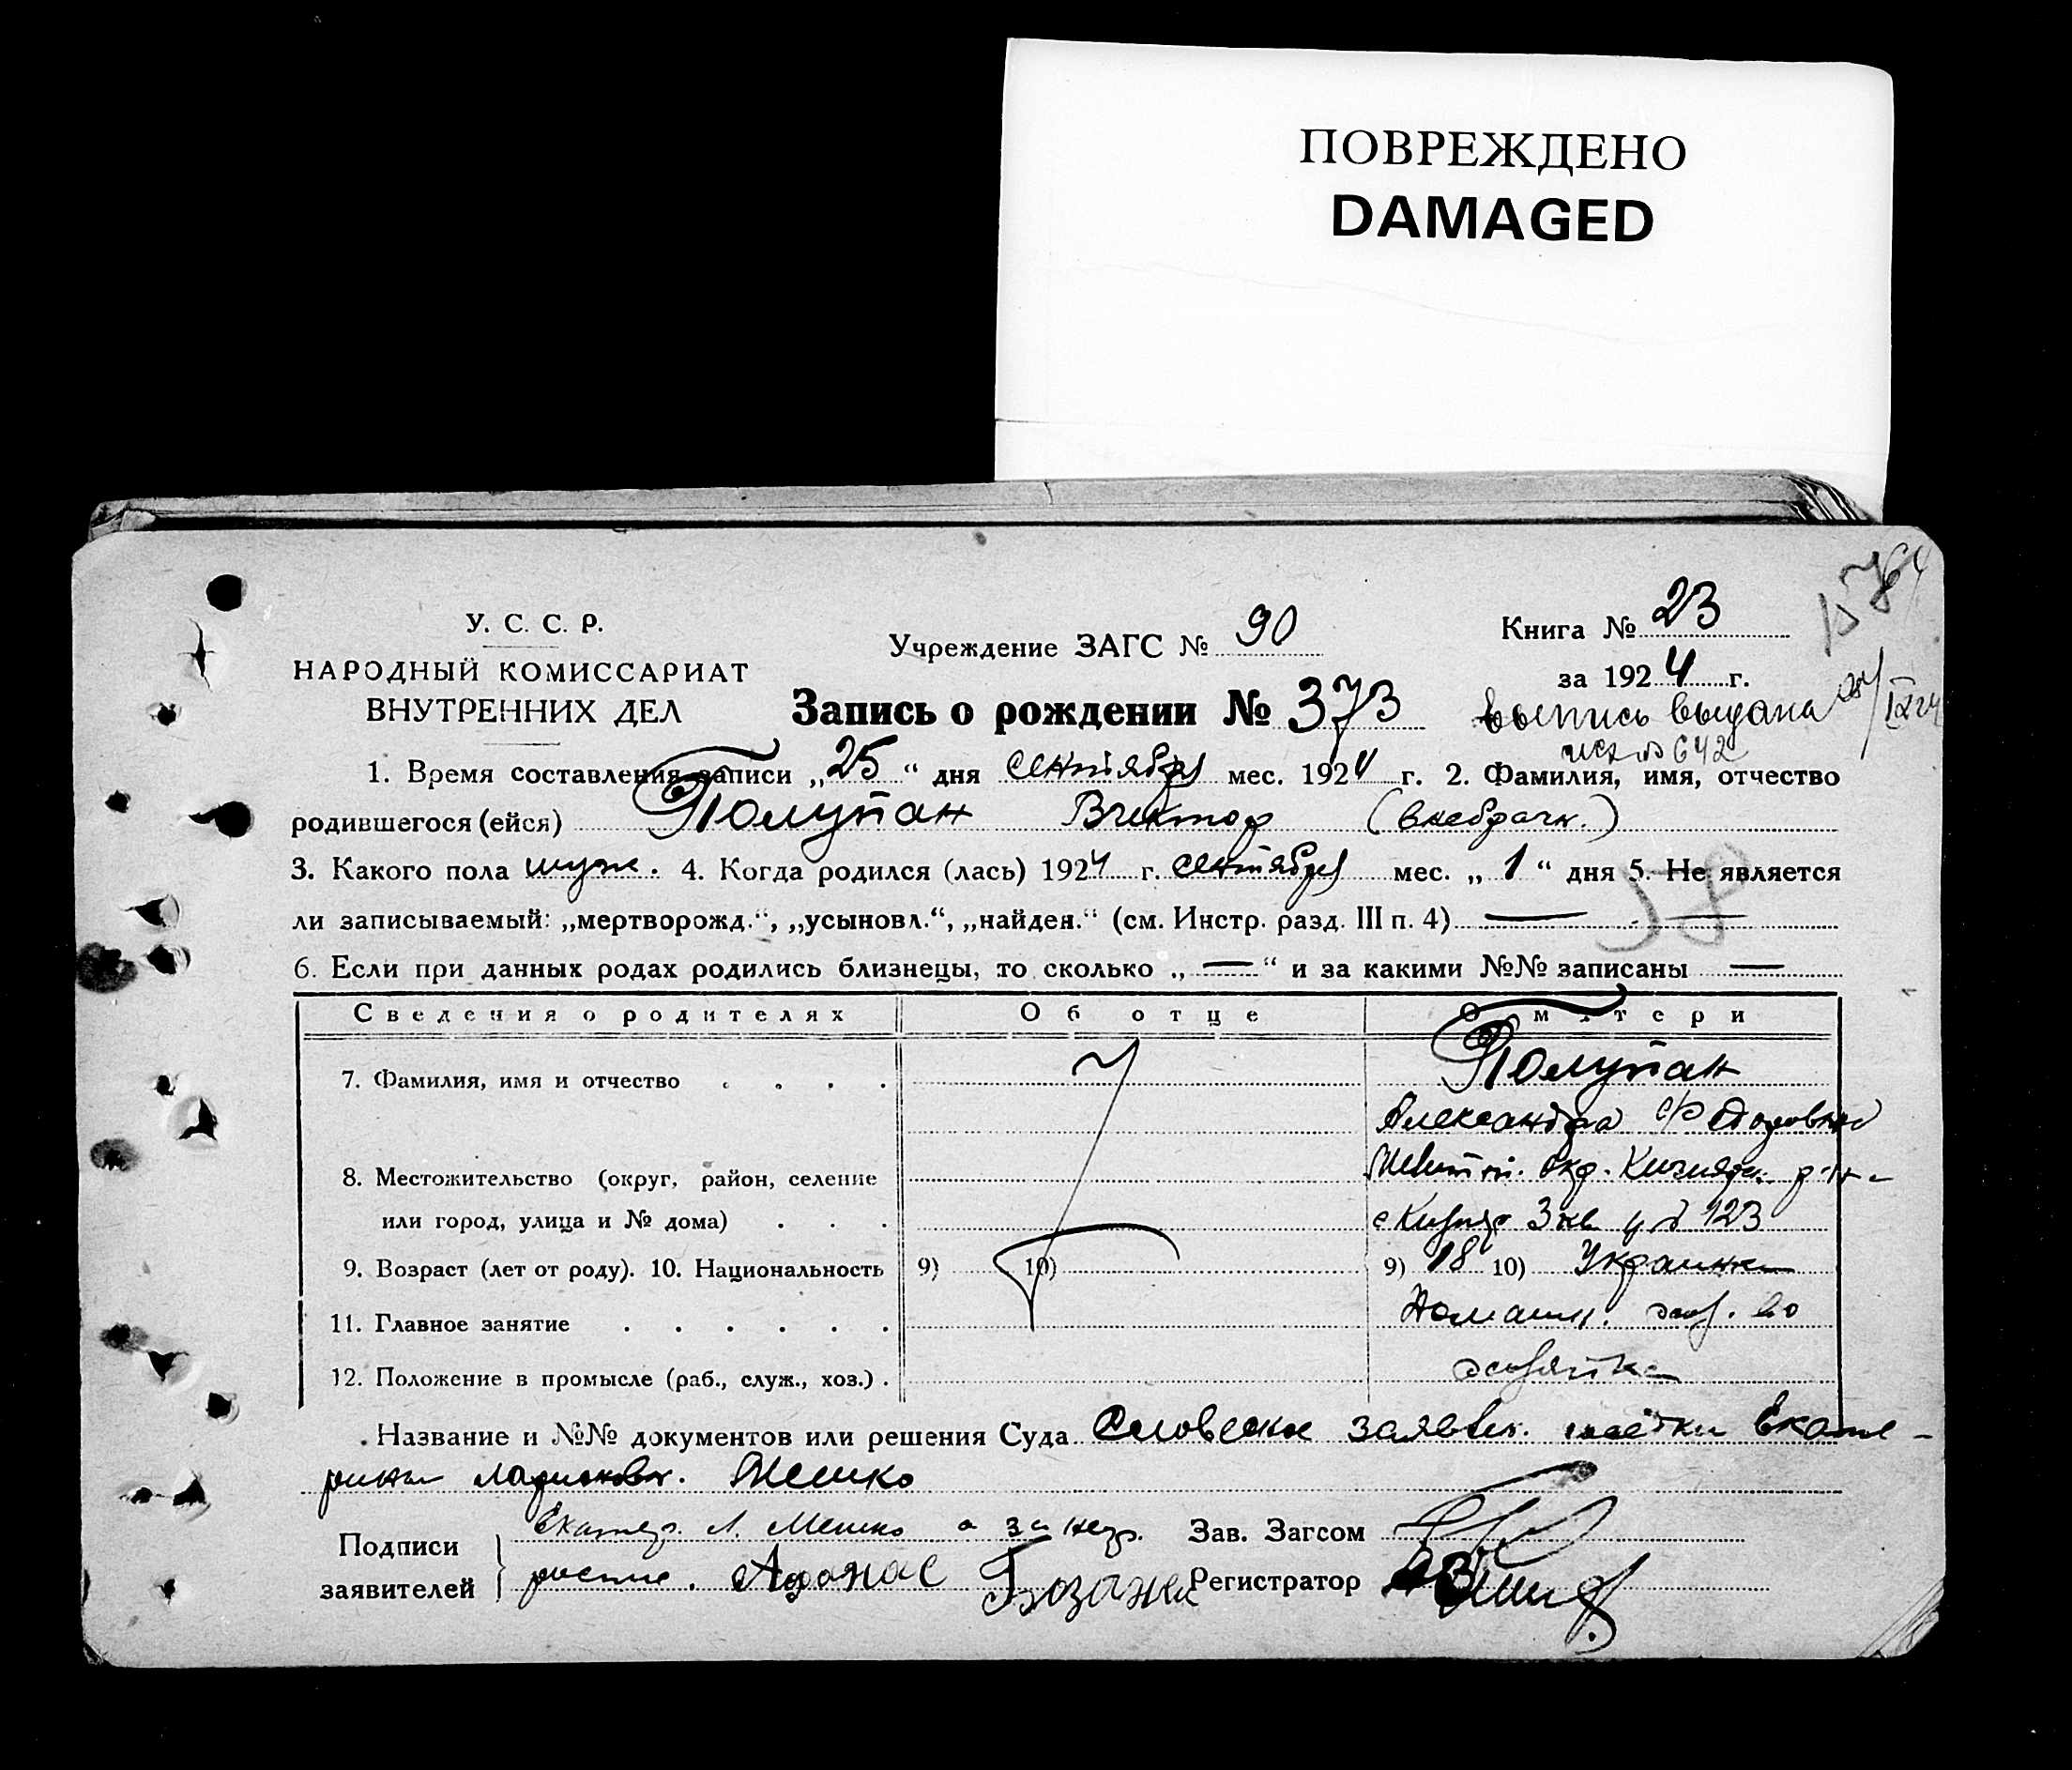 ПОВРЕЖДЕНО
DAMAGED
У. С. С. Р.
НАРОДНЫЙ КОМИССАРИАТ
ВНУТРЕННИХ ДЕЛ
Учреждение ЗАГС № 90
Книга № 23
за 1924 г.
Запись о рождении № 373
Выпись выдана
642
1. Время составления записи „25“ дня сентября мес. 1924 г. 2. Фамилия, имя, отчество
родившегося (ейся) Полупан Виктор (внебрачн.)
3. Какого пола муж. 4. Когда родился (лась) 1924 г. сентября мес. „1“ дня 5. Не является
ли записываемый: „мертворожд.“, „усыновл.“, „найден.“ (см. Инстр. разд. III п. 4) — —
58
6. Если при данных родах родились близнецы, то сколько „—“ и за какими №№ записаны —
Сведения о родителях Об отце О матери
7. Фамилия, имя и отчество Полупан
Александра Федоровна
8. Местожительство (округ, район, селение
или город, улица и № дома) 123
9. Возраст (лет от роду). 10. Национальность 9) 10) 9) 18 10) Украинка
11. Главное занятие Домашн. хоз. во
12. Положение в промысле (раб., служ., хоз.) хозяйка
Название и №№ документов или решения Суда Словесное заявлен. тётки Екате-
рины Ларионовн. Мешко
Подписи
заявителей
Екатер. Л. Мешко а за негр.
распис. Афонас
Зав. Загсом
Регистратор